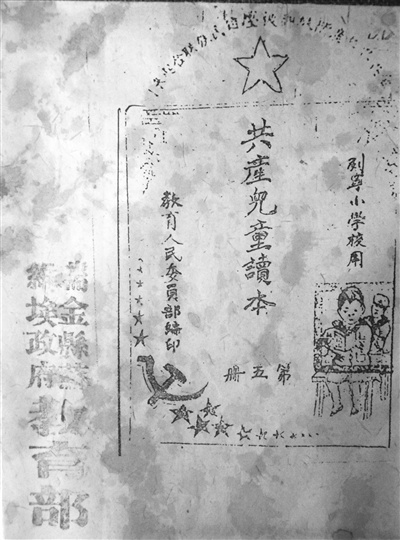 列寧小学校用
共產兒童讀本
第五册
教育人民委員部編印
瑞金縣蘇
維埃政府
教育部